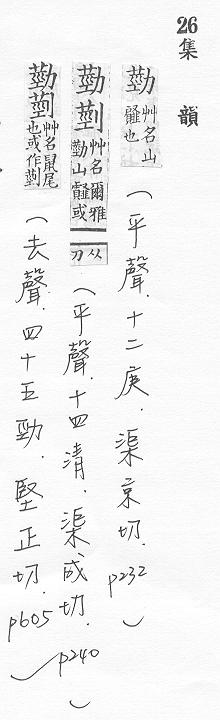 26 集韻
葝 艸名山䪥也（平聲.十二庚.渠京切.p232）
葝 艸名爾雅葝山䪥或从刀（平聲.十四清.渠成切.p240）
葝 艸名鼠尾也或作（去聲.四十五勁.堅正切.p605）